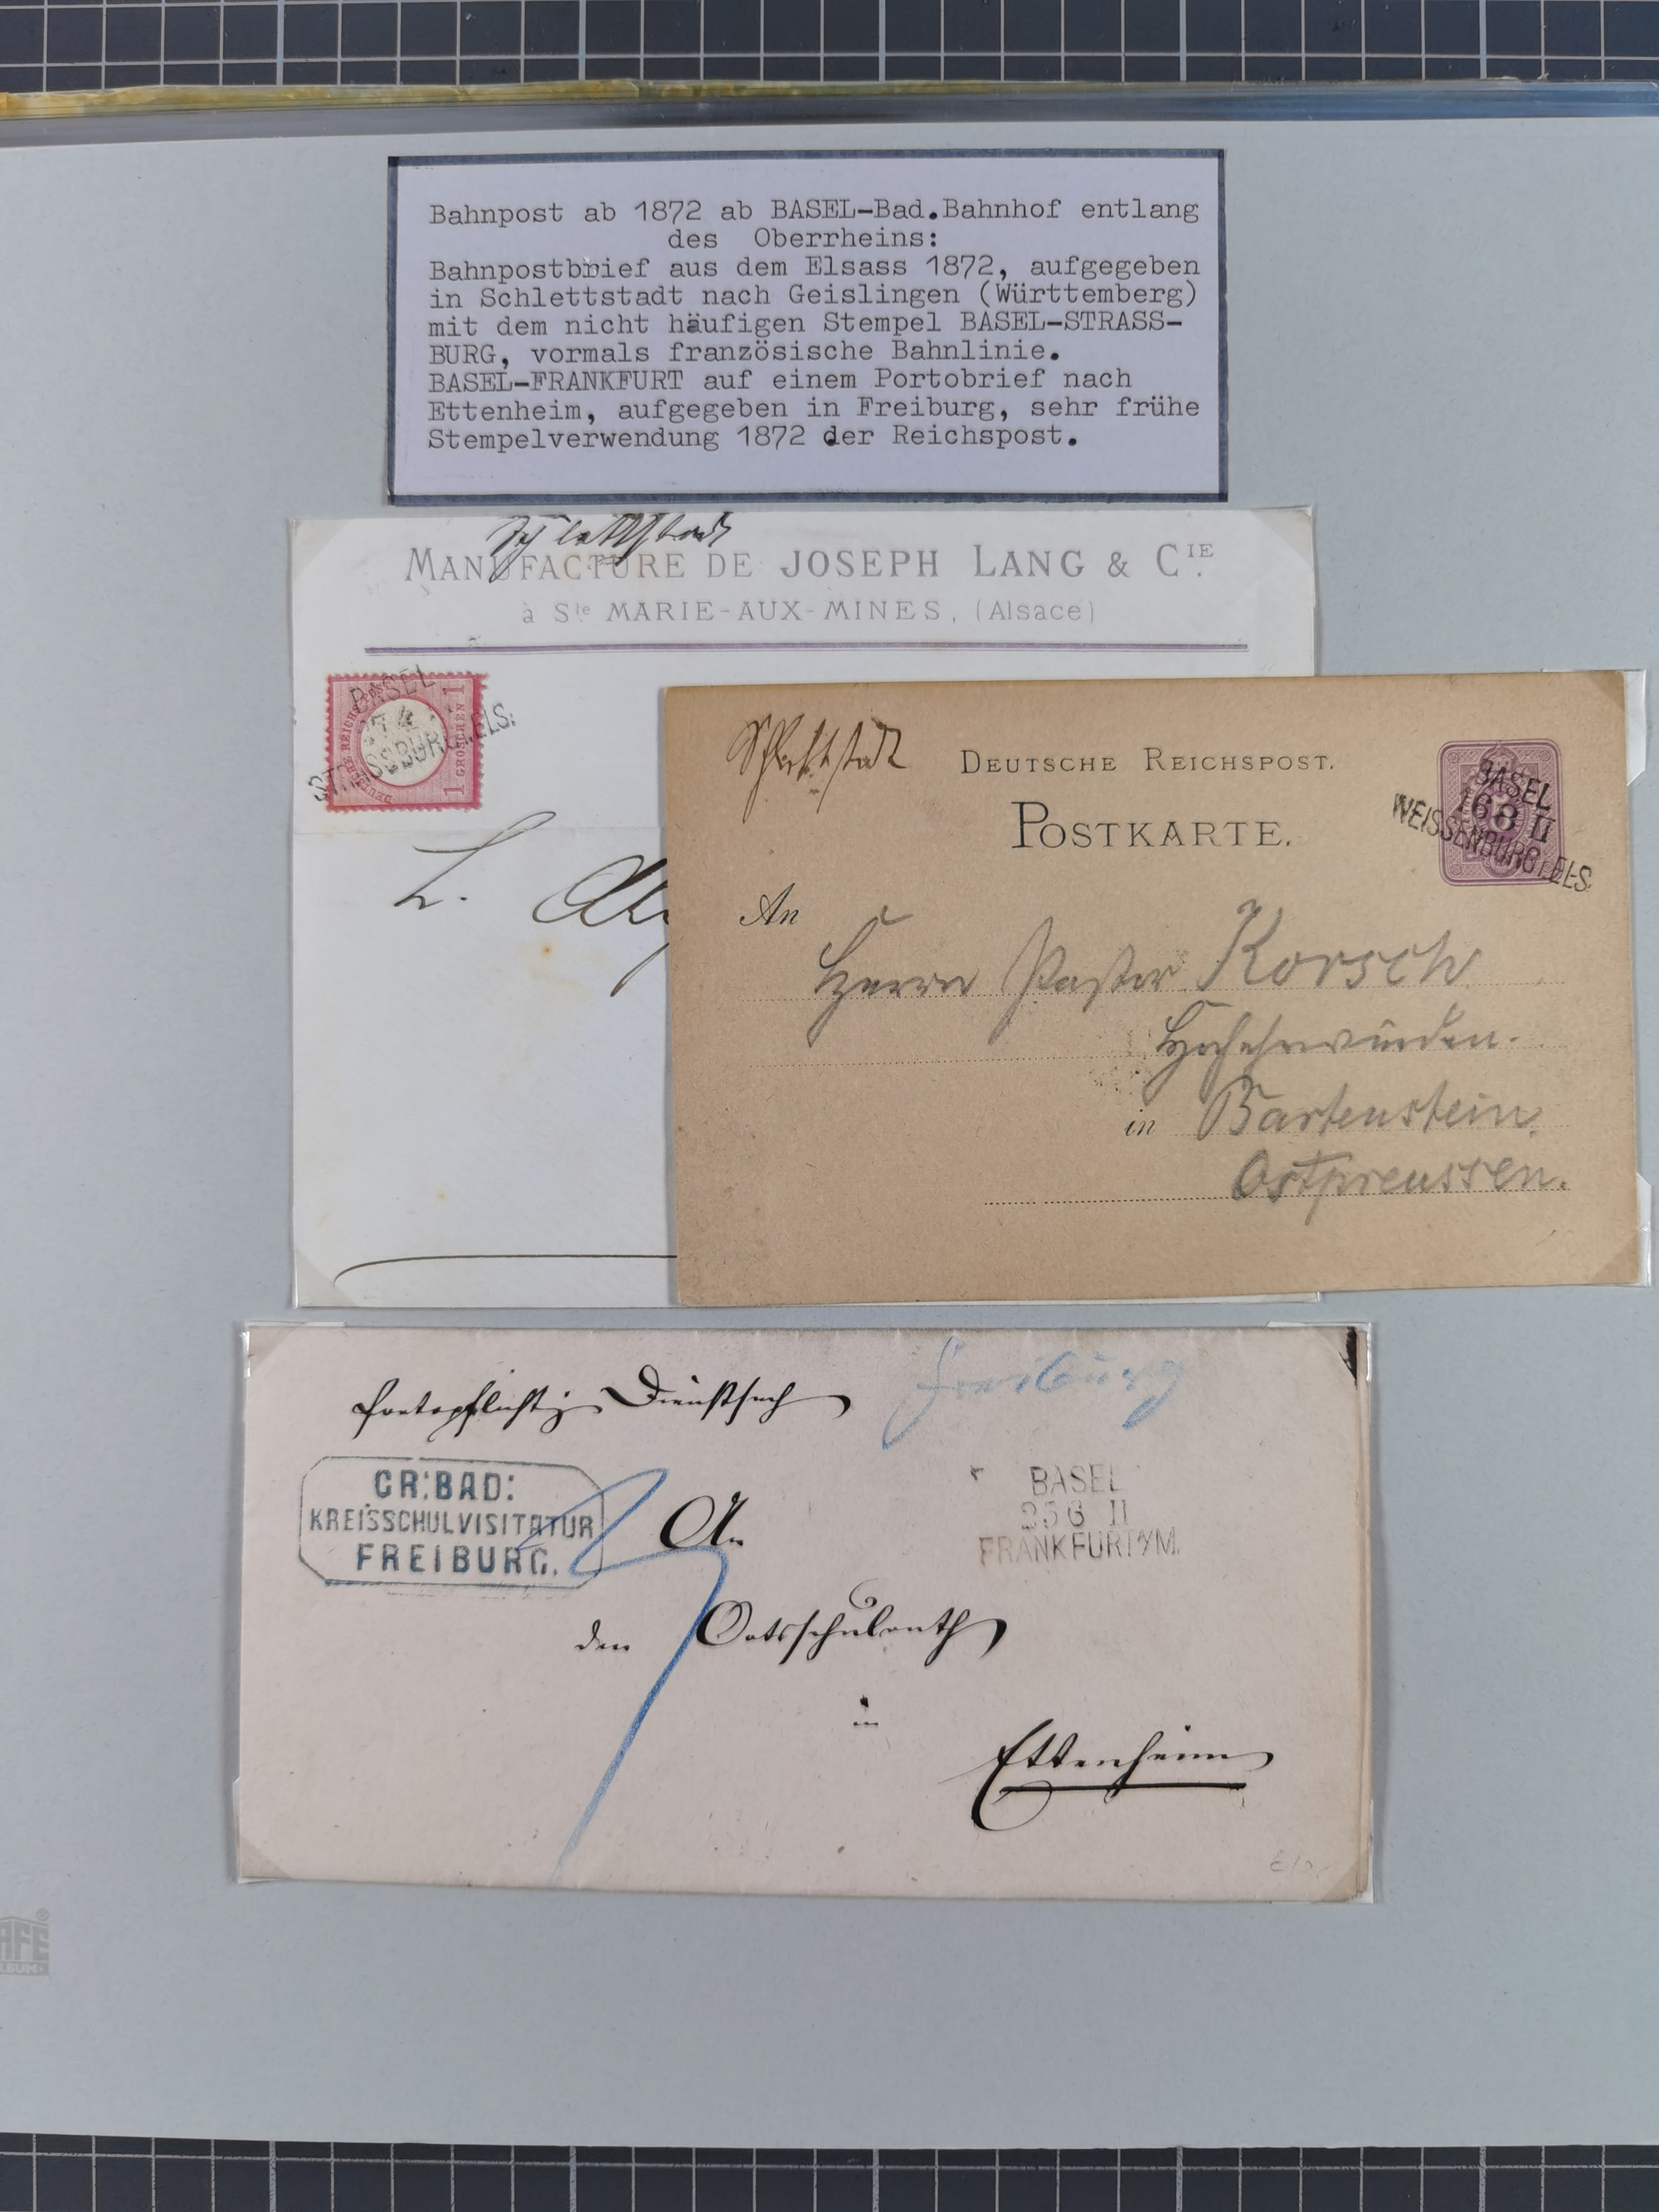 Bahnpost ab 1872 ab BASEL-Bad.Bahnhof entlang
des Oberrheins:
Bahnpostbrief aus dem Elsass 1872, aufgegeben
in Schlettstadt nach Geislingen (Württemberg)
mit dem nicht häufigen Stempel BASEL-STRASS-
BURG, vormals französische Bahnlinie.
BASEL-FRANKFURT auf einem Portobrief nach
Ettenheim, aufgegeben in Freiburg, sehr frühe
Stempelverwendung 1872 der Reichspost.
Schlettstadt
MANUFACTURE DE JOSEPH LANG & CIE.
à Ste MARIE-AUX-MINES, (Alsace)
BASEL
1 GROSCHEN 1
L.
Schlettstadt
DEUTSCHE REICHSPOST.
POSTKARTE.
BASEL
16 8 II
WEISSENBURG i. ELS.
An
Herrn Pastor Korsch
Hochehrwürden.
in Bartenstein.
Ostpreussen.
Portopflichtige Dienstsach
Freiburg
GR: BAD:
KREISSCHULVISITATUR
FREIBURG.
BASEL
25 6 II
FRANKFURT a/M.
An
den Ortsschulrath
in
Ettenheim